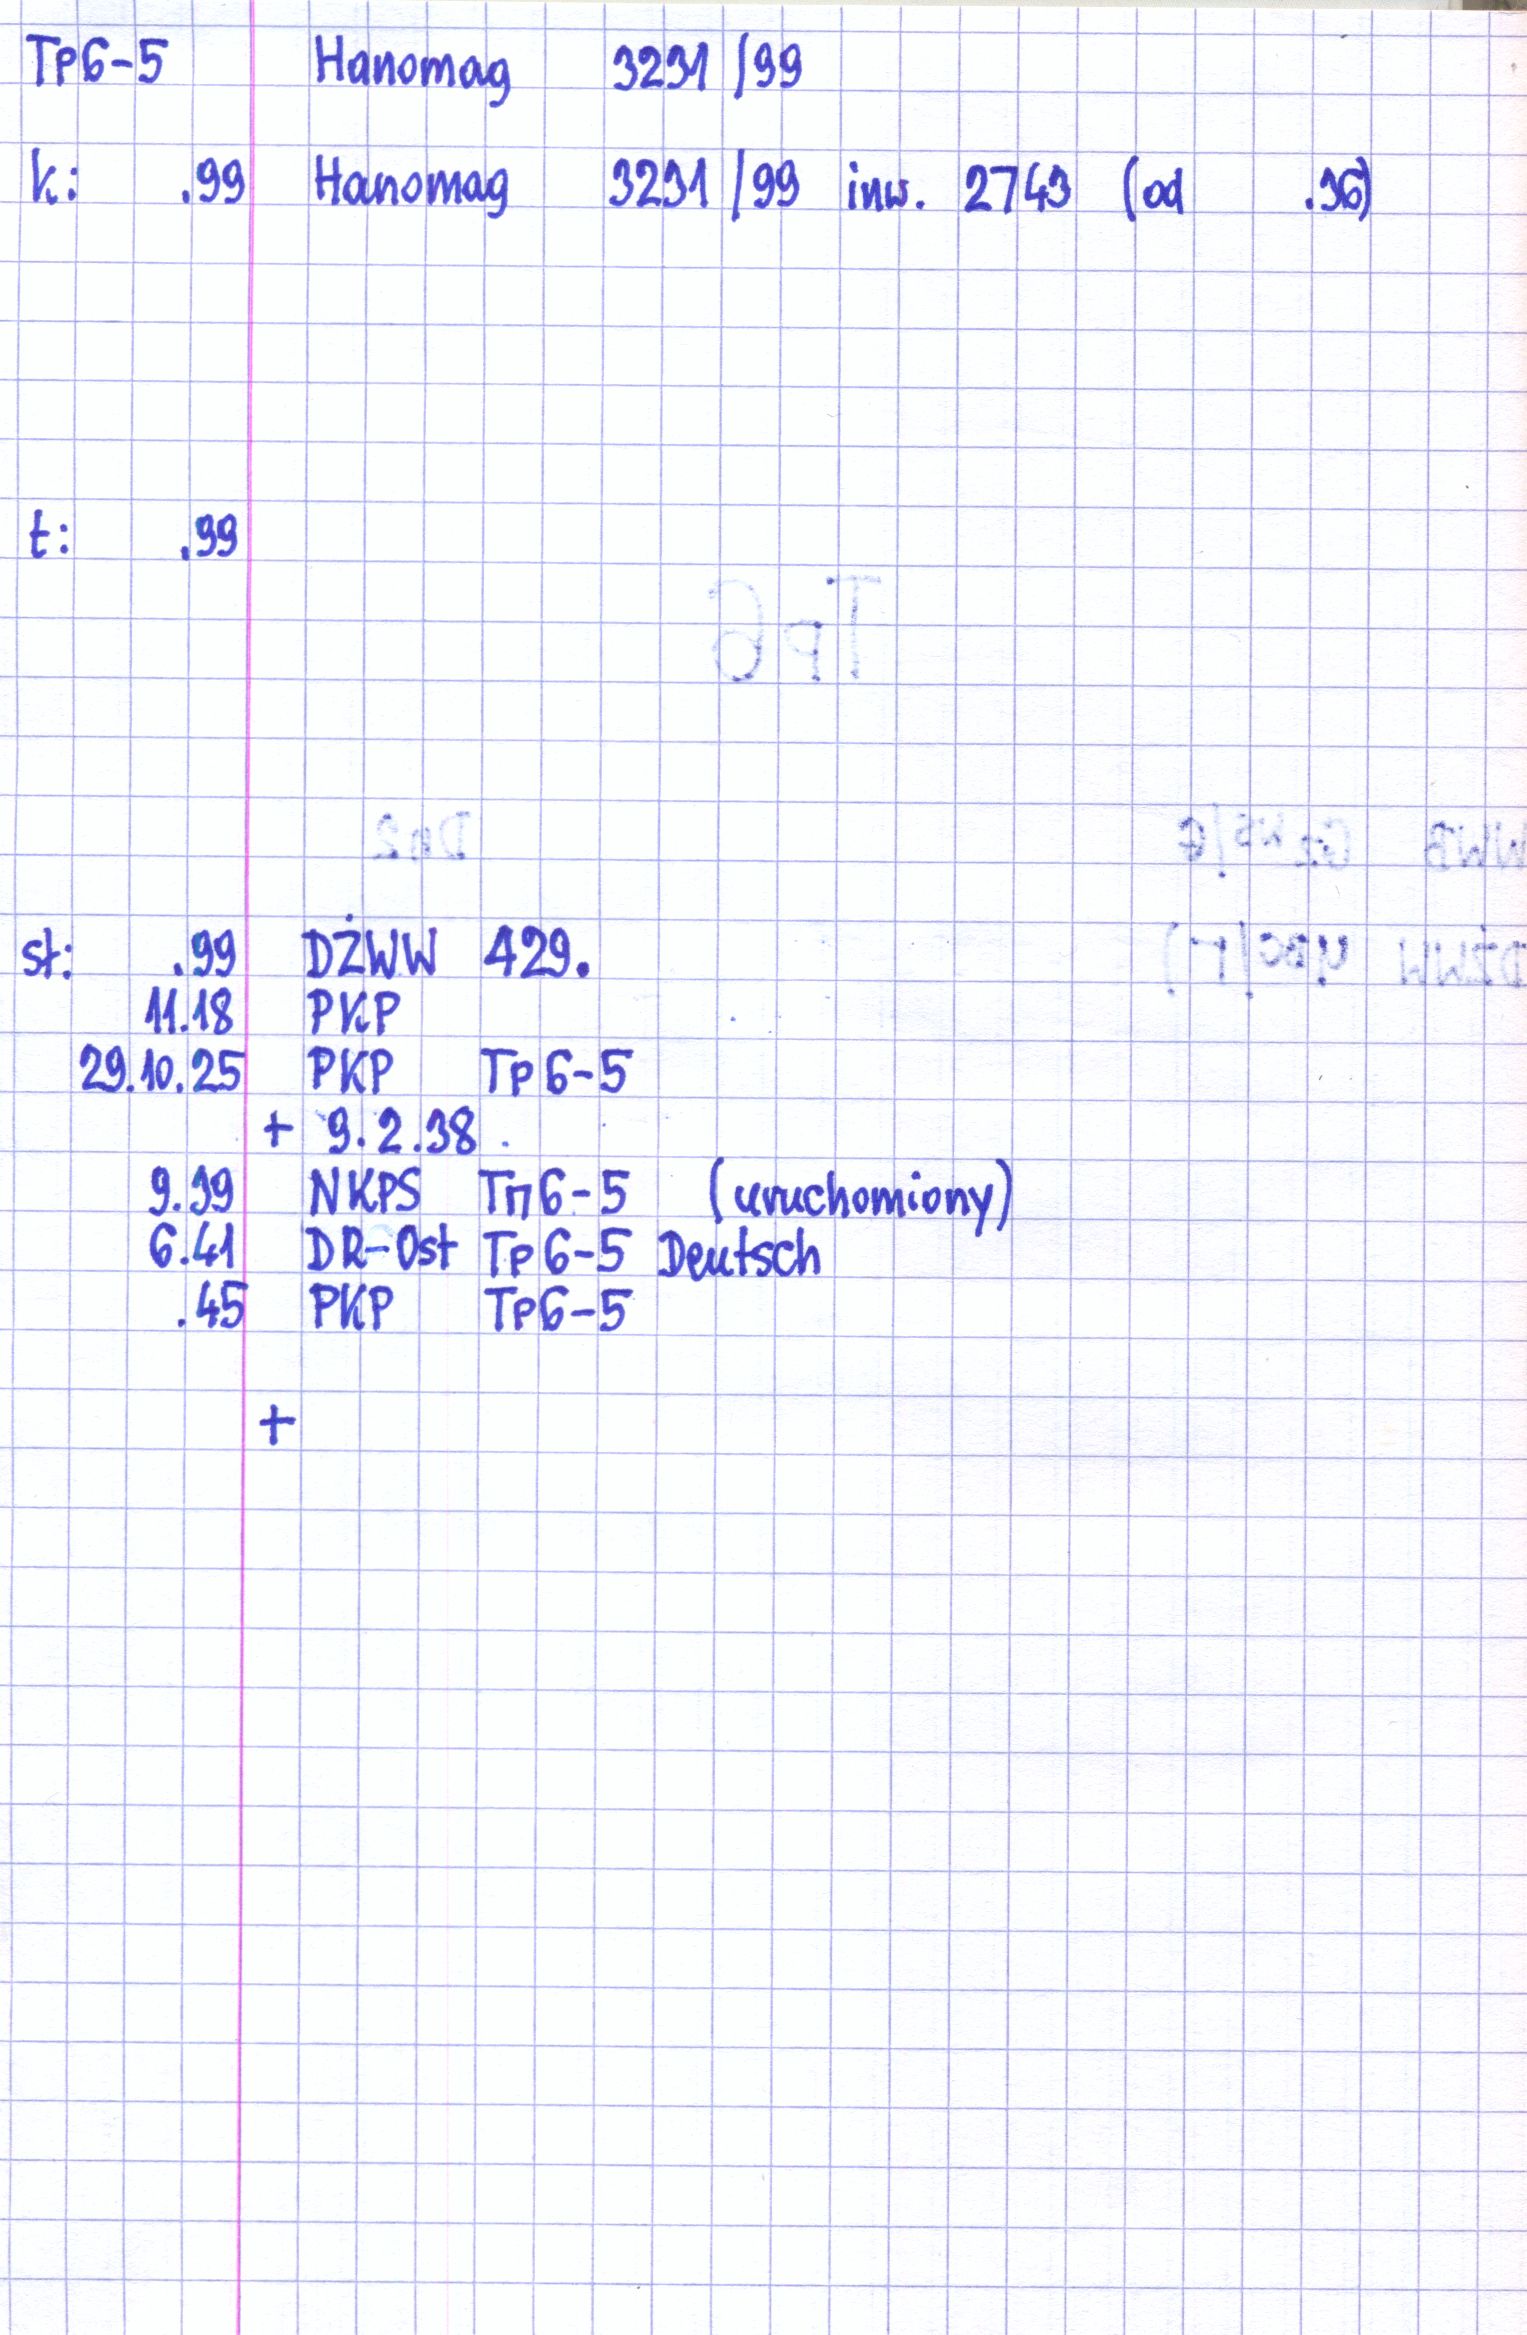 Tp6-5 Hanomag 3231/99
k: .99 Hanomag 3231/99 inw. 2743 (od .36)
t: .99
Tp6
Dn2
st: .99 DŻWW 429.
11.18 PKP
29.10.25 PKP Tp6-5
+ 9.2.38
9.39 NKPS Тп6-5 (uruchomiony)
6.41 DR-Ost Tp6-5 Deutsch
.45 PKP Tp6-5
+